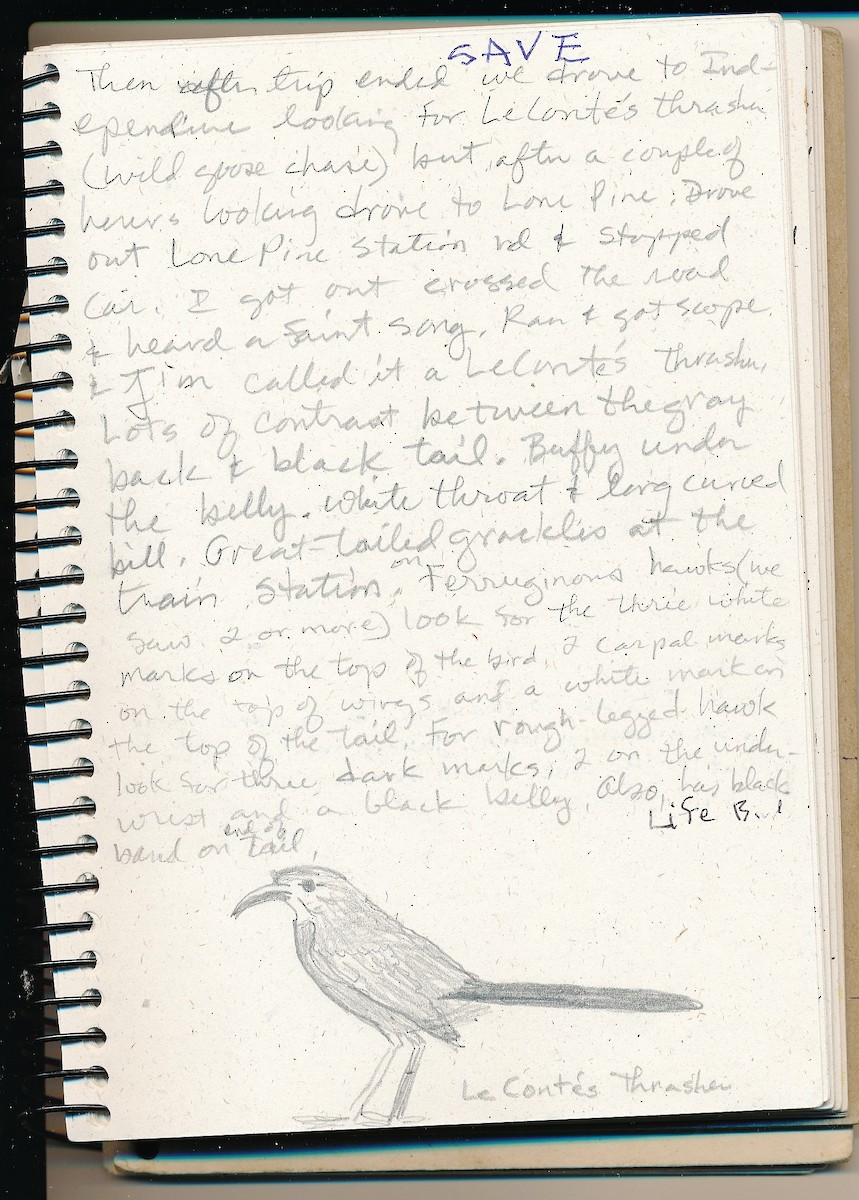 SAVE
Then after trip ended we drove to Ind-
ependence looking for LeConte's thrasher
(wild goose chase) but after a couple of
hours looking drove to Lone Pine. Drove
out Lone Pine Station rd & stopped
car. I got out crossed the road
& heard a faint song. Ran & got scope
& Jim called it a LeConte's thrasher.
Lots of contrast between the gray
back & black tail. Buffy under
the belly. White throat & long curved
bill. Great-tailed grackles at the
train station. on Ferruginous hawks (we
saw 2 or more) look for the three white
marks on the top of the bird. 2 carpal marks
on the top of wings and a white mark on
the top of the tail. For rough-legged hawk
look for three dark marks, 2 on the under-
wrist and a black belly. Also, has black
band on end of tail.
Life B.!
Le Conte's Thrasher